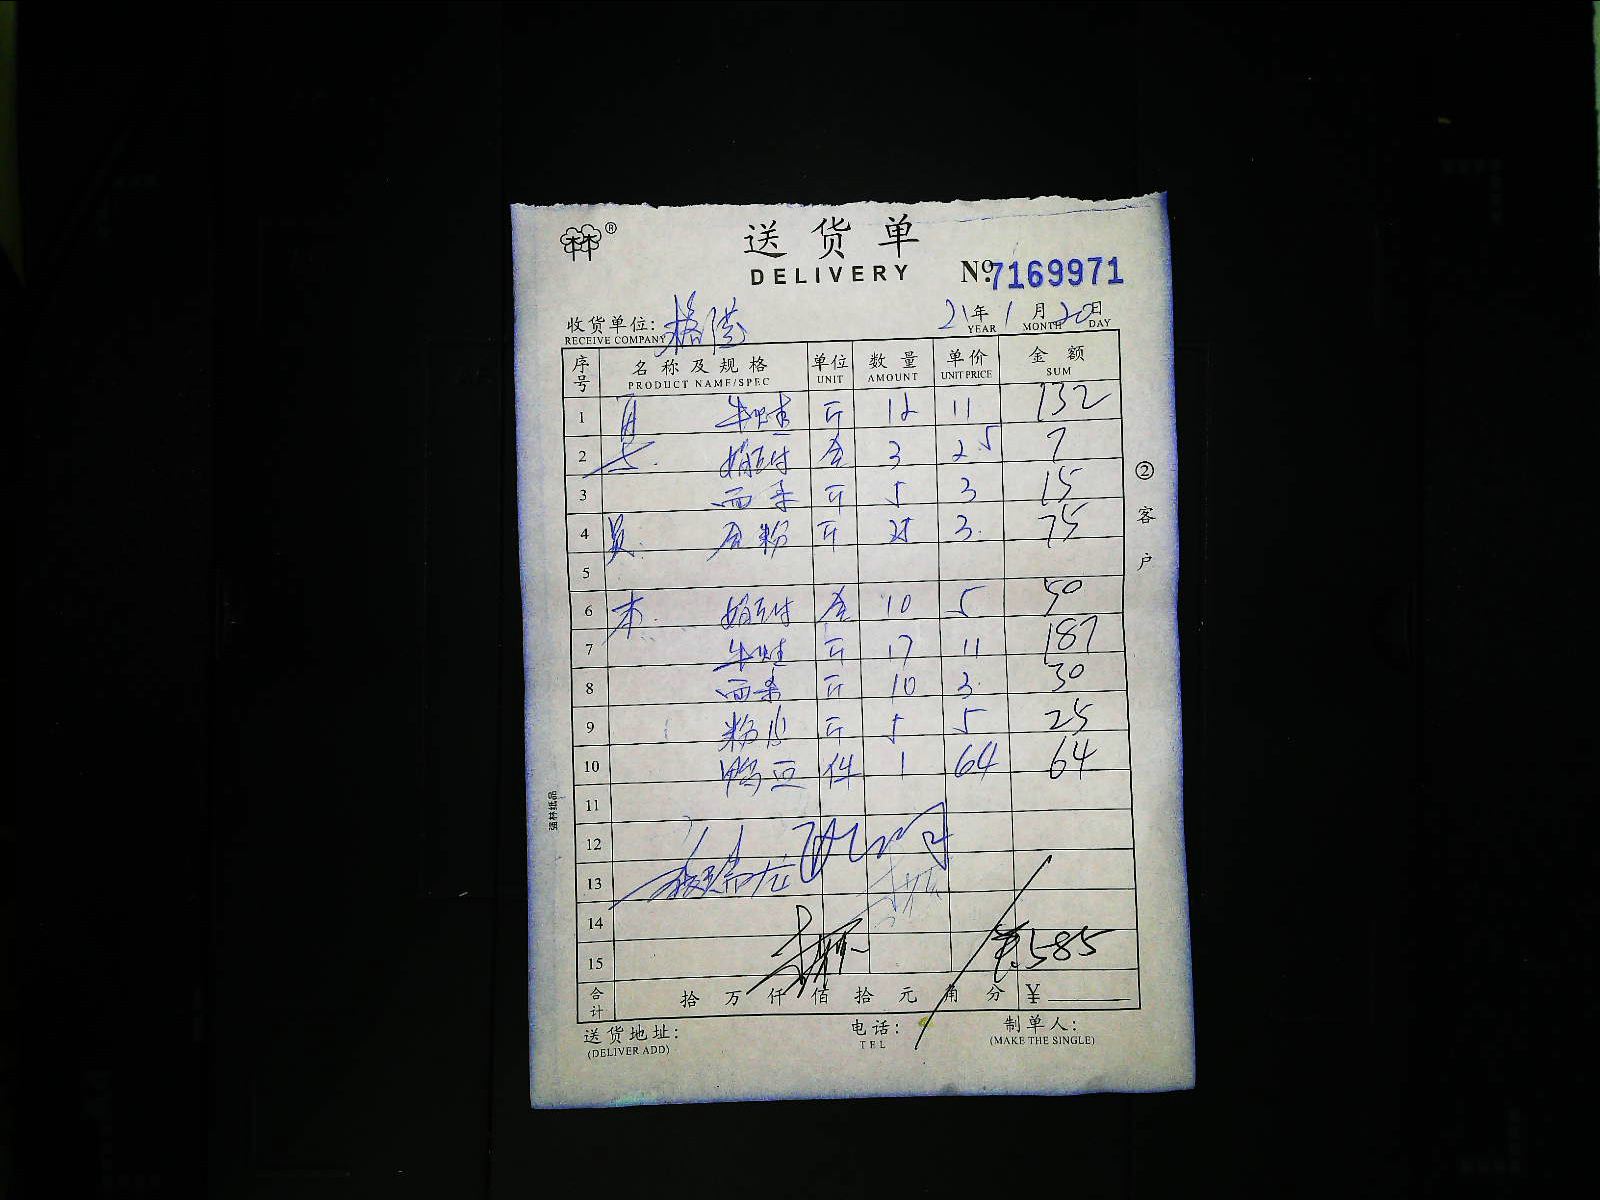 林林 ®
送货单
DELIVERY Nº 7169971
收货单位: 21年 1月 20日
RECEIVE COMPANY YEAR MONTH DAY
序号 名称及规格 单位 数量 单价 金额
PRODUCT NAME/SPEC UNIT AMOUNT UNIT PRICE SUM
1 牛蛙 斤 12 11 132
2 盒 3 2.5 7
3 西 斤 5 3 15
4 粉 斤 25 3. 75
5
6 本. 盒 10 5 50
7 牛蛙 斤 17 11 187
8 西 斤 10 3. 30
9 粉 斤 5 5 25
10 鸭 件 1 64 64
11
12
13
14
15 585
合计 拾 万 仟 佰 拾 元 角 分 ¥
送货地址: 电话: 制单人:
(DELIVER ADD) TEL (MAKE THE SINGLE)
②客户
强林纸品